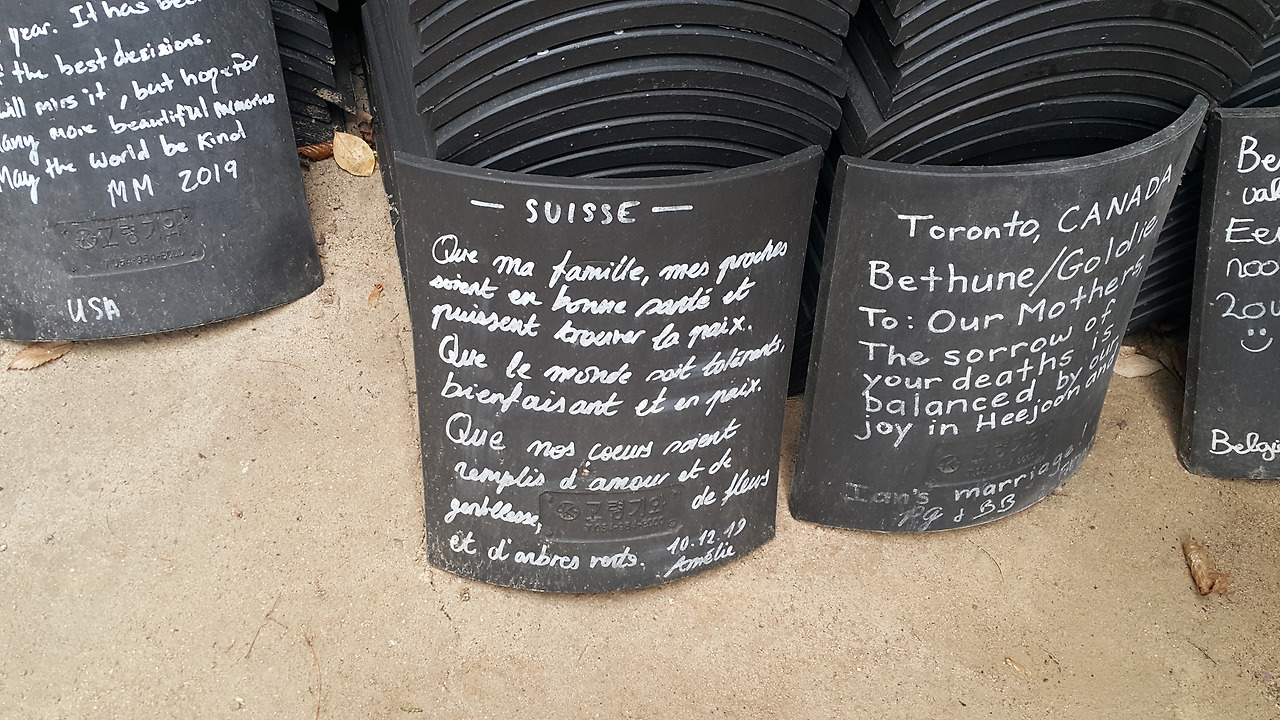 year. It has been
the best decisions.
will miss it, but hope for
many more beautiful memories
May the world be Kind
MM 2019
고령기와
USA
— SUISSE —
Que ma famille, mes proches
soient en bonne santé et
puissent trouver la paix.
Que le monde soit tolérants,
bienfaisant et en paix.
Que nos coeurs soient
remplis d'amour et de
gentillesse, de fleurs
고령기와
et d'arbres verts. 10.12.19
Amélie
Toronto, CANADA
Bethune/Goldie
To: Our Mothers
The sorrow of
your deaths is
balanced by our
joy in Heejodn and
Ian's marriage!
PG & BB
Be
Eer
noo
Belgi